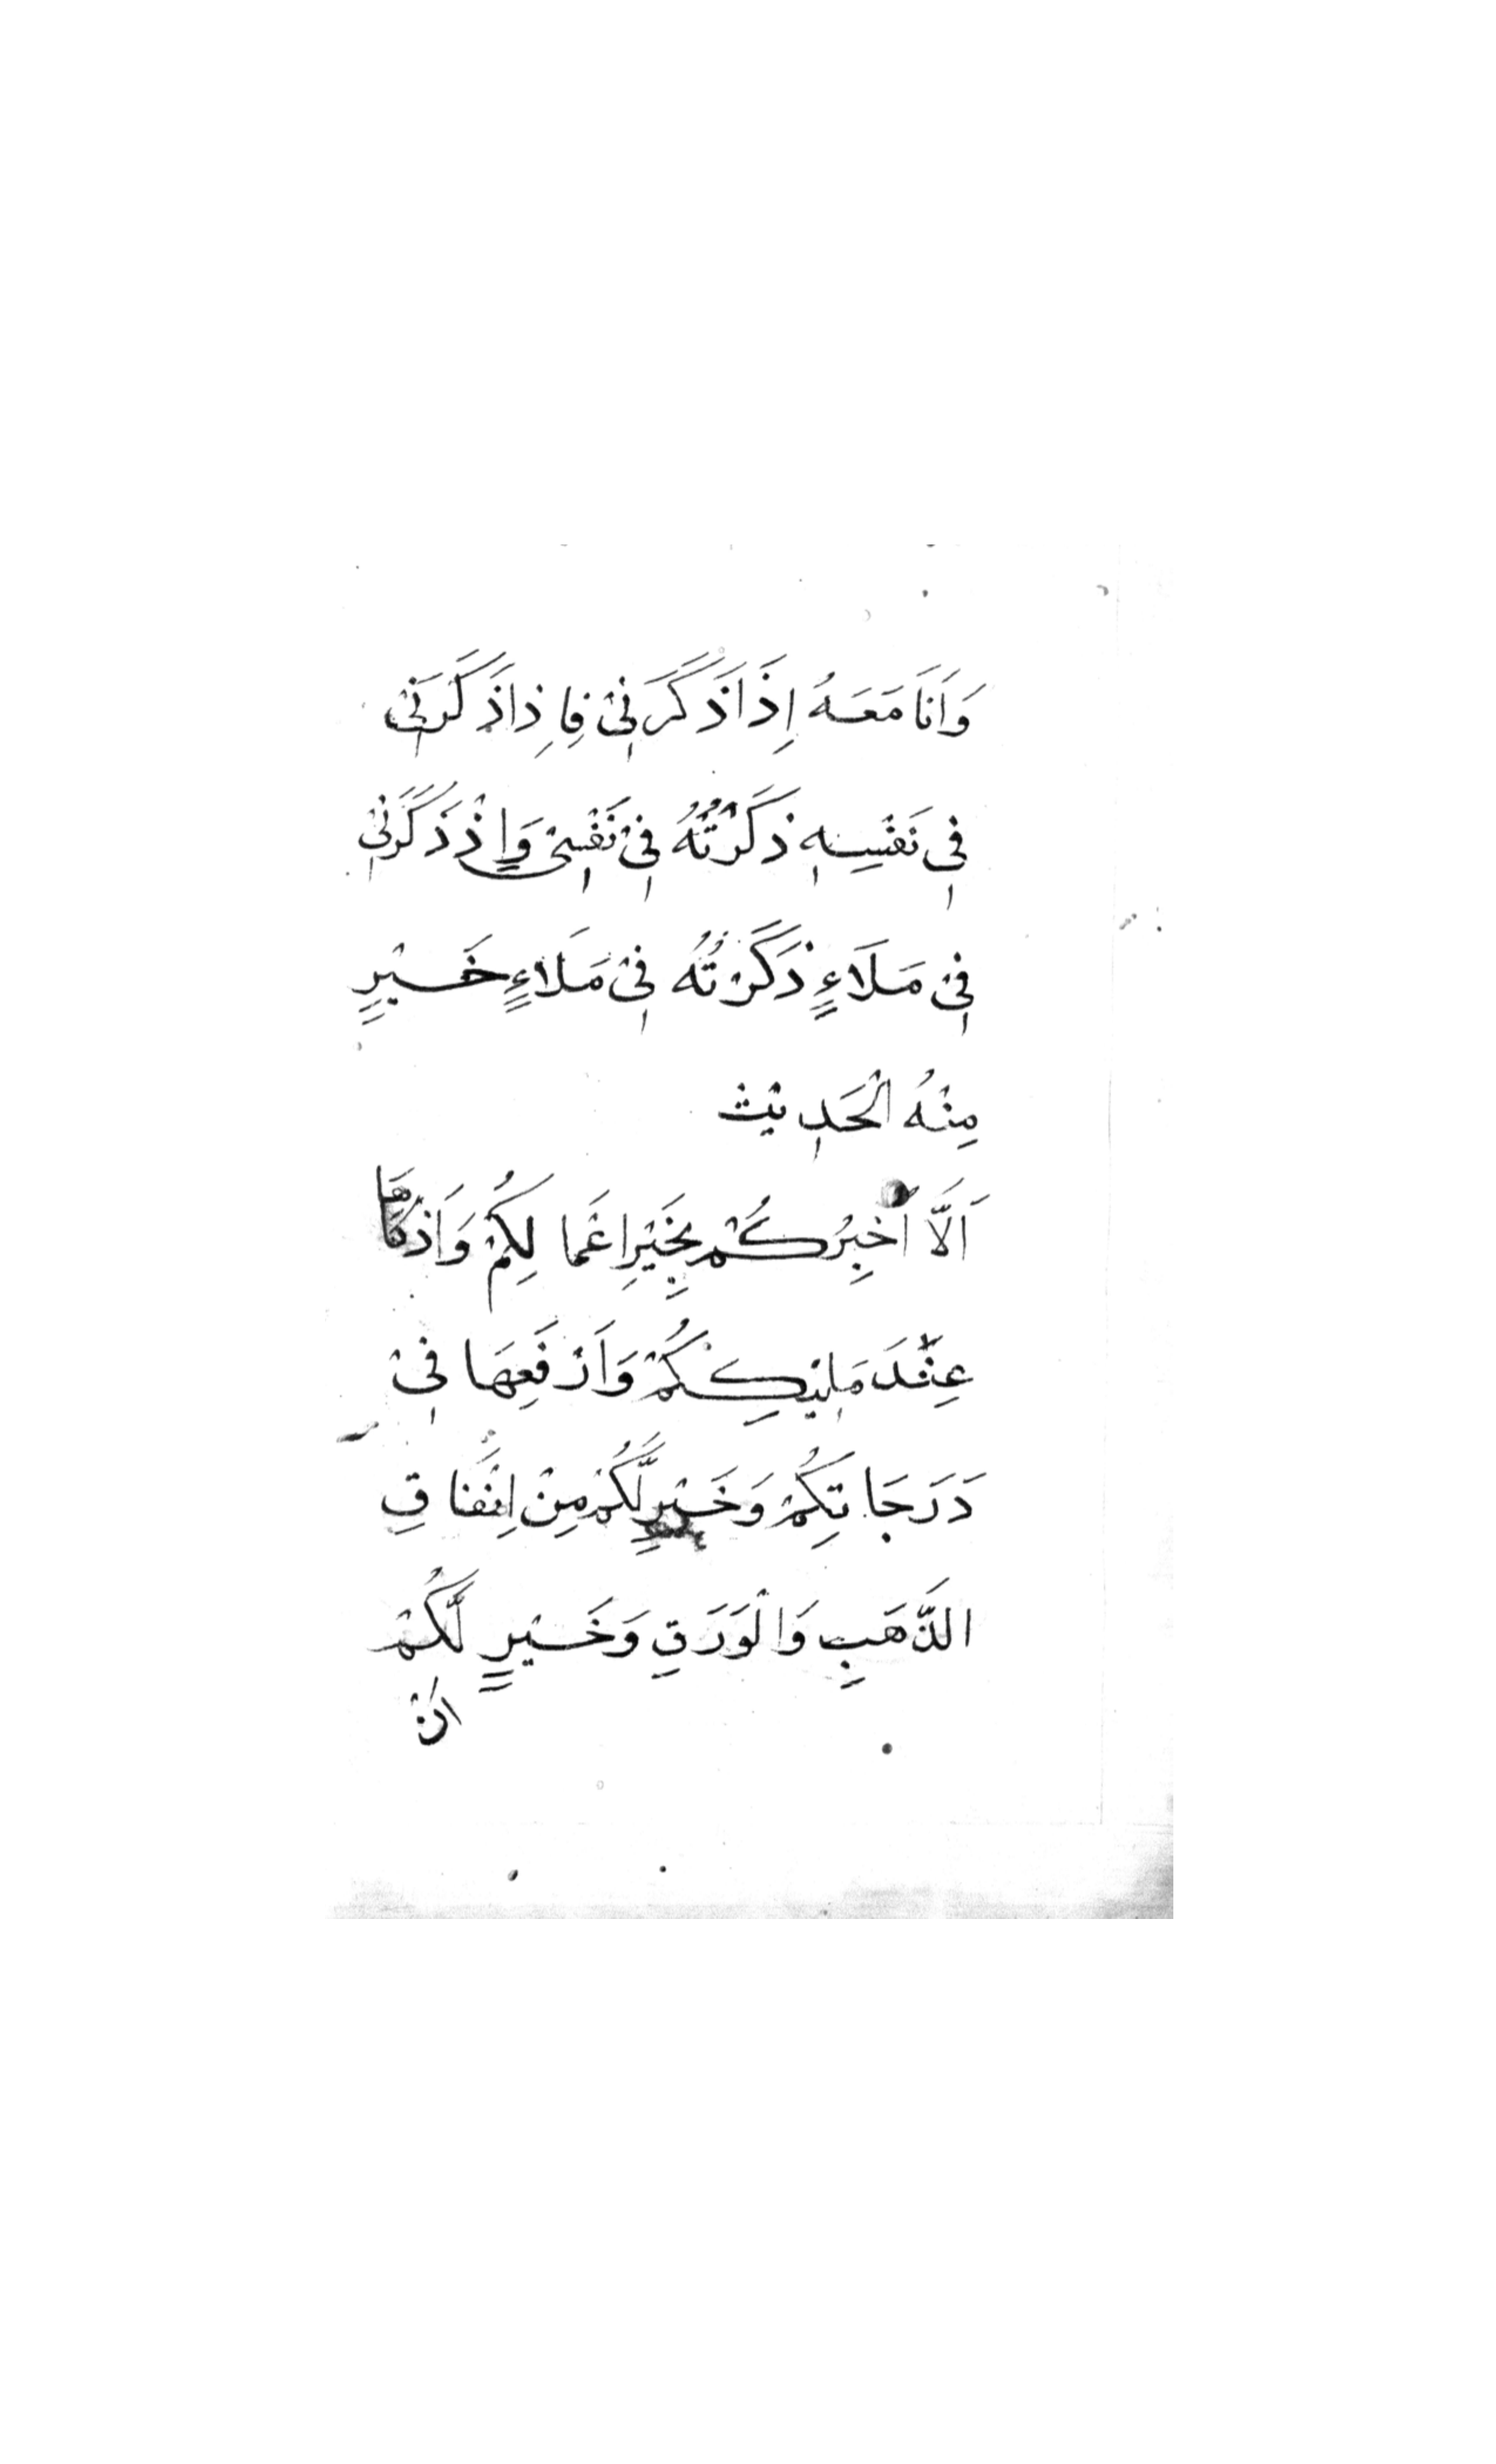 وَاَنَا مَعَهُ اِذَا ذَكَرَنِیْ فَاِذَا ذَكَرَنِیْ
فِیْ نَفْسِهٖ ذَكَرْتُهُ فِیْ نَفْسِیْ وَاِذْ ذَكَرَنِیْ
فِیْ مَلَاءٍ ذَكَرْتُهُ فِیْ مَلَاءٍ خَیْرٍ
مِنْهُ الْحَدِیْث
اَلَّا اُخْبِرُكُمْ بِخَیْرِ اَعْمَالِكُمْ وَاَذْكَاهَا
عِنْدَ مَلِیْكِكُمْ وَاَرْفَعِهَا فِیْ
دَرَجَاتِكُمْ وَخَیْرٍ لَّكُمْ مِنْ اِنْفَاقِ
الذَّهَبِ وَالْوَرَقِ وَخَیْرٍ لَّكُمْ
اَنْ